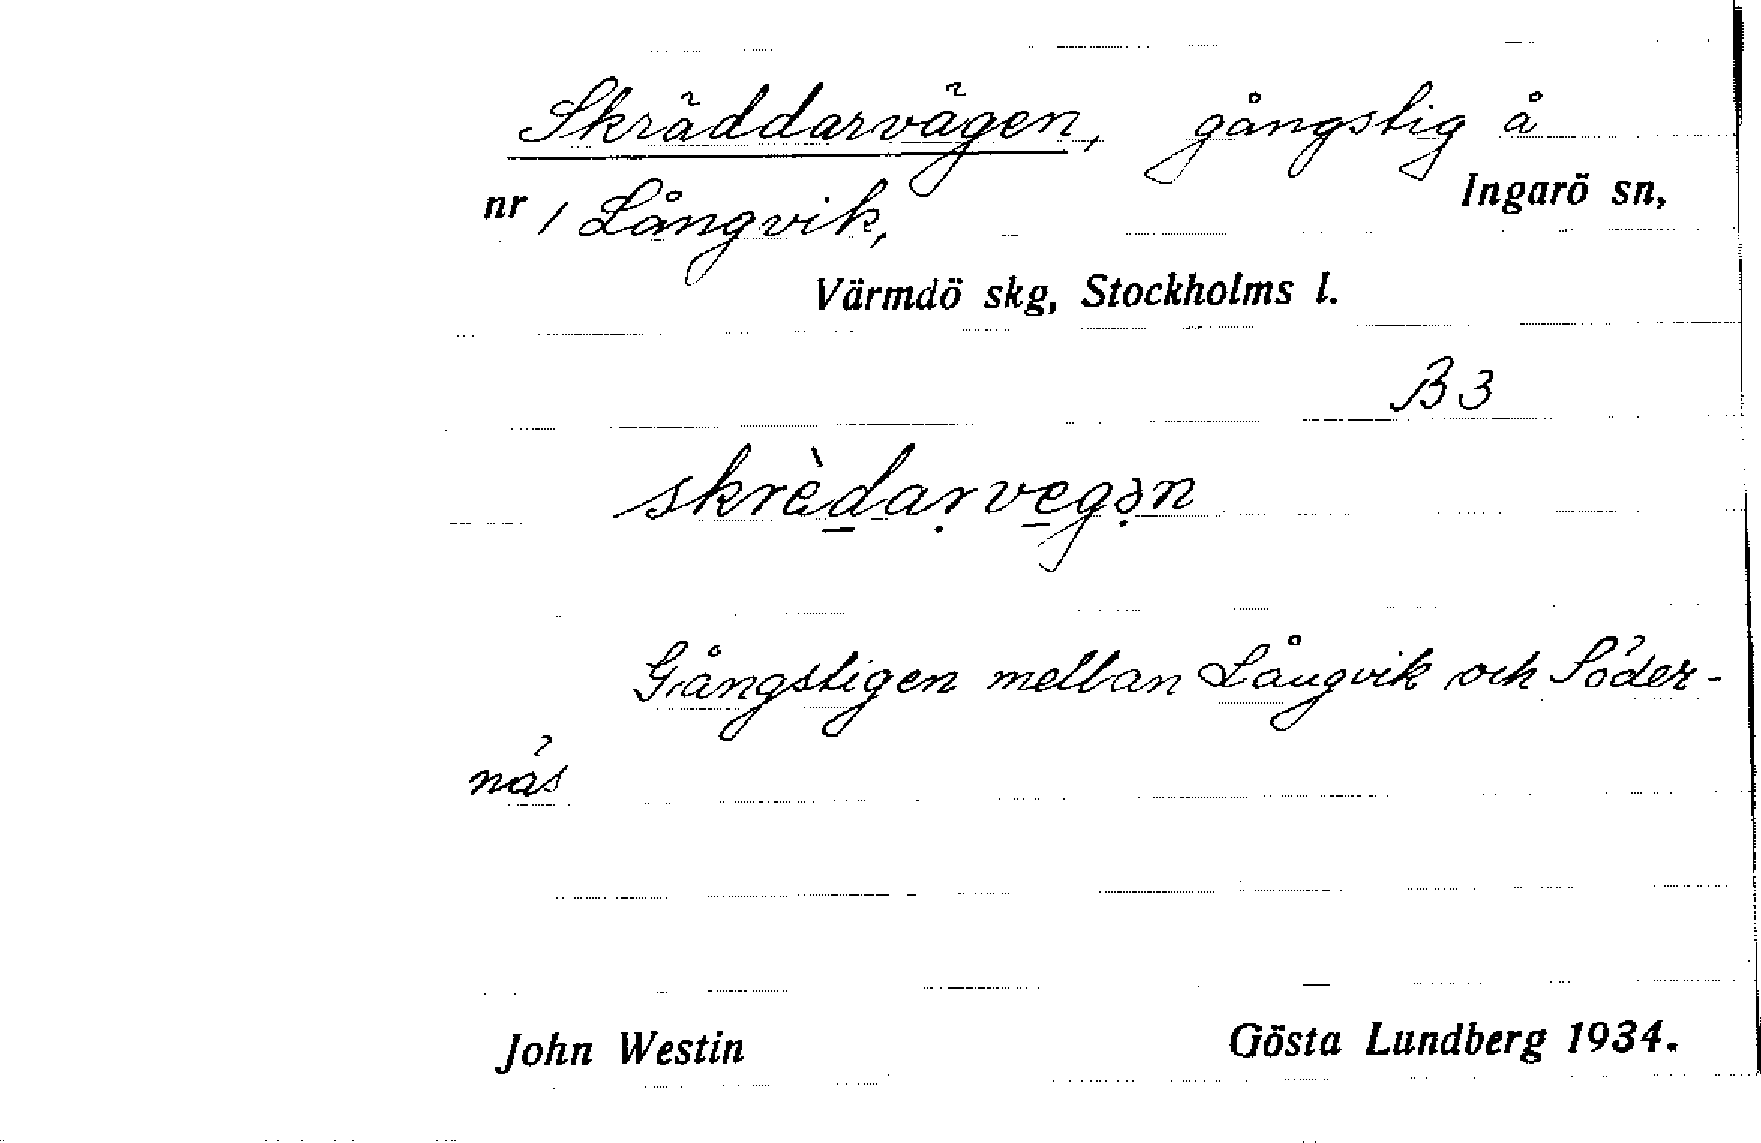 Skräddarvägen, gångstig å
nr 1 Långvik, Ingarö sn,
Värmdö skg, Stockholms l.
B3
skrèd̲aṛve̲gə̣n
Gångstigen mellan Långvik och Söder-
näs
John Westin Gösta Lundberg 1934.